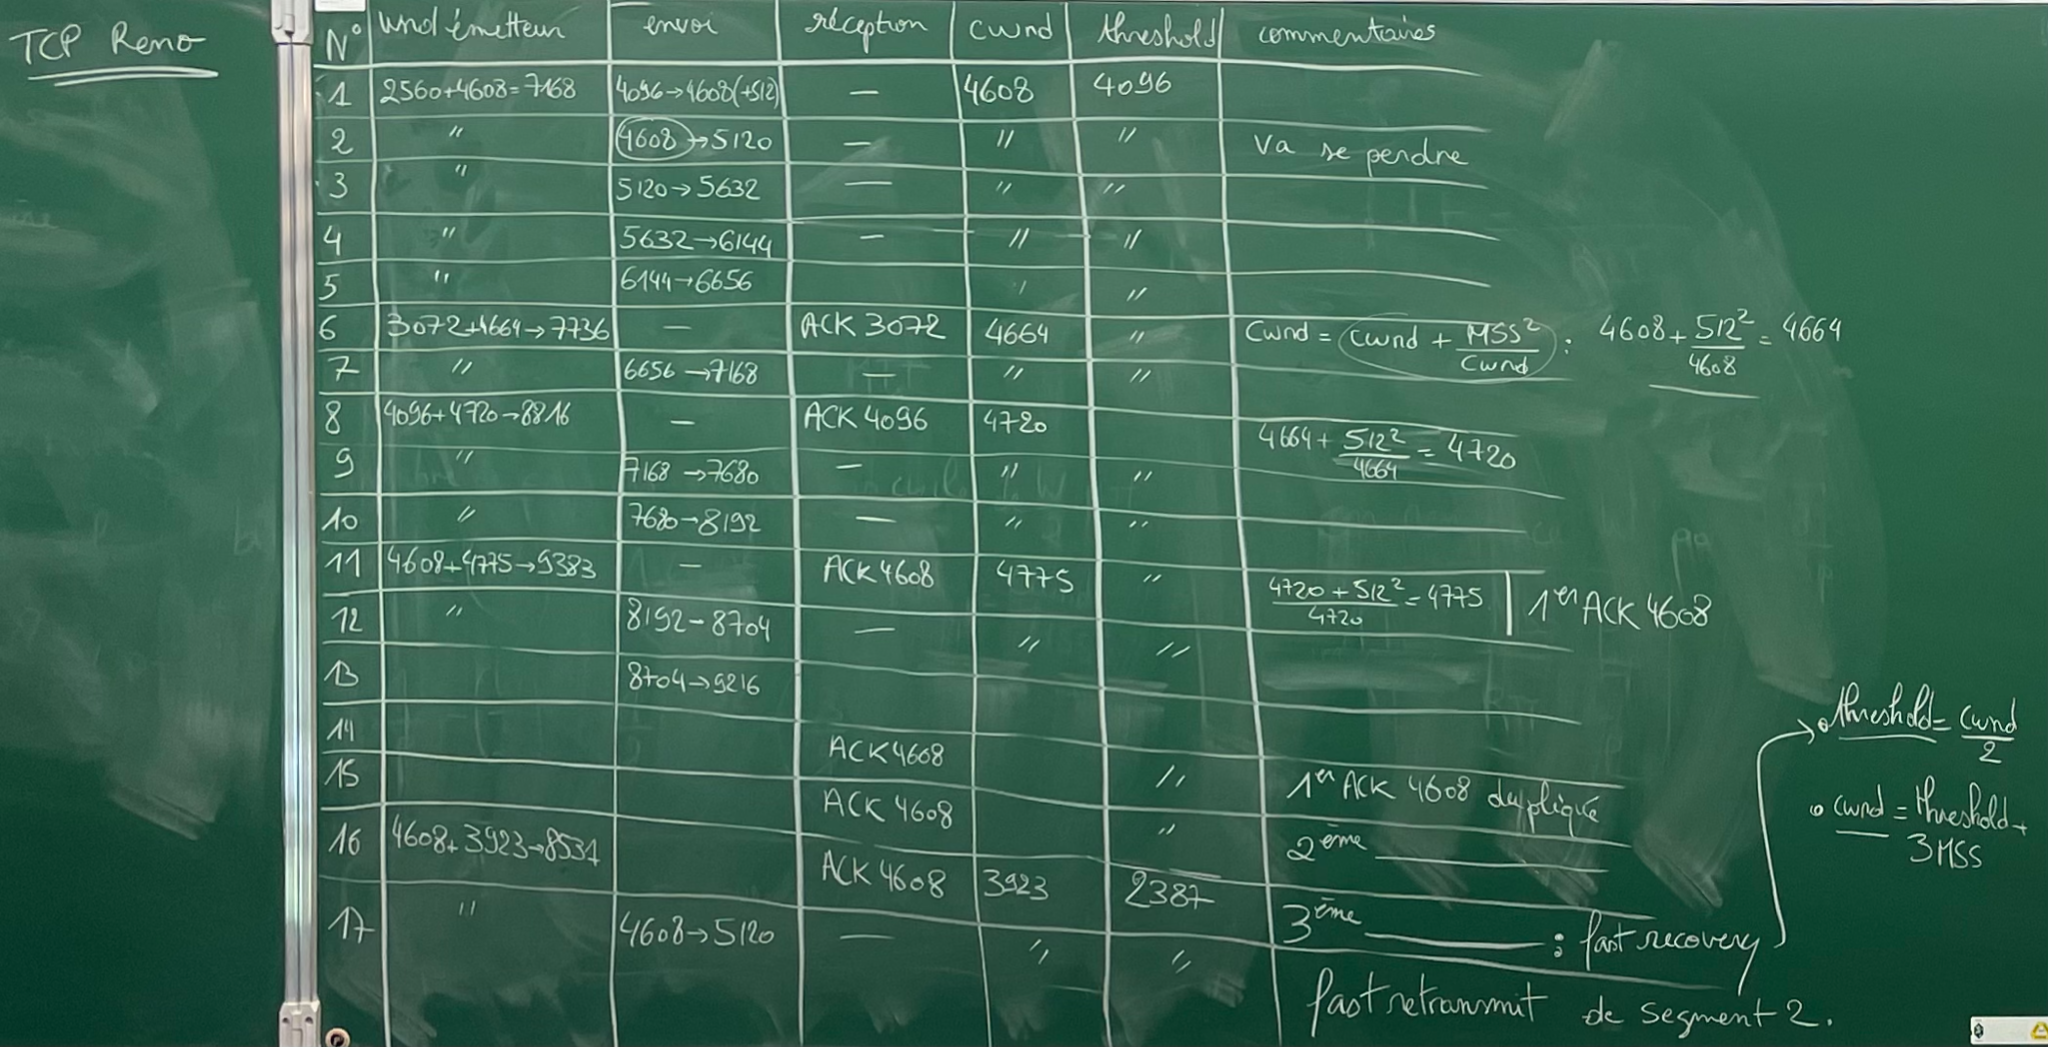 TCP Reno
N° wnd émetteur envoi réception cwnd threshold commentaires
1 2560+4608=7168 4096→4608(+512) — 4608 4096
2 " 4608→5120 — " " Va se perdre
3 " 5120→5632 — " "
4 " 5632→6144 — " "
5 " 6144→6656 " "
6 3072+4664→7736 — ACK 3072 4664 " Cwnd = cwnd + MSS²/cwnd : 4608+512²/4608 = 4664
7 " 6656→7168 — " "
8 4096+4720→8816 — ACK 4096 4720 4664+512²/4664 = 4720
9 " 7168→7680 — " "
10 " 7680→8192 — " "
11 4608+4775→9383 — ACK 4608 4775 " 4720+512²/4720 = 4775 | 1er ACK 4608
12 " 8192-8704 — " "
13 8704→9216
14 ACK 4608 " 1er ACK 4608 dupliqué
15 ACK 4608 " 2ème
16 4608+3923→8531 ACK 4608 3923 2387 3ème : fast recovery
17 " 4608→5120 — " " fast retransmit de segment 2.
threshold = cwnd/2
cwnd = threshold +
3MSS